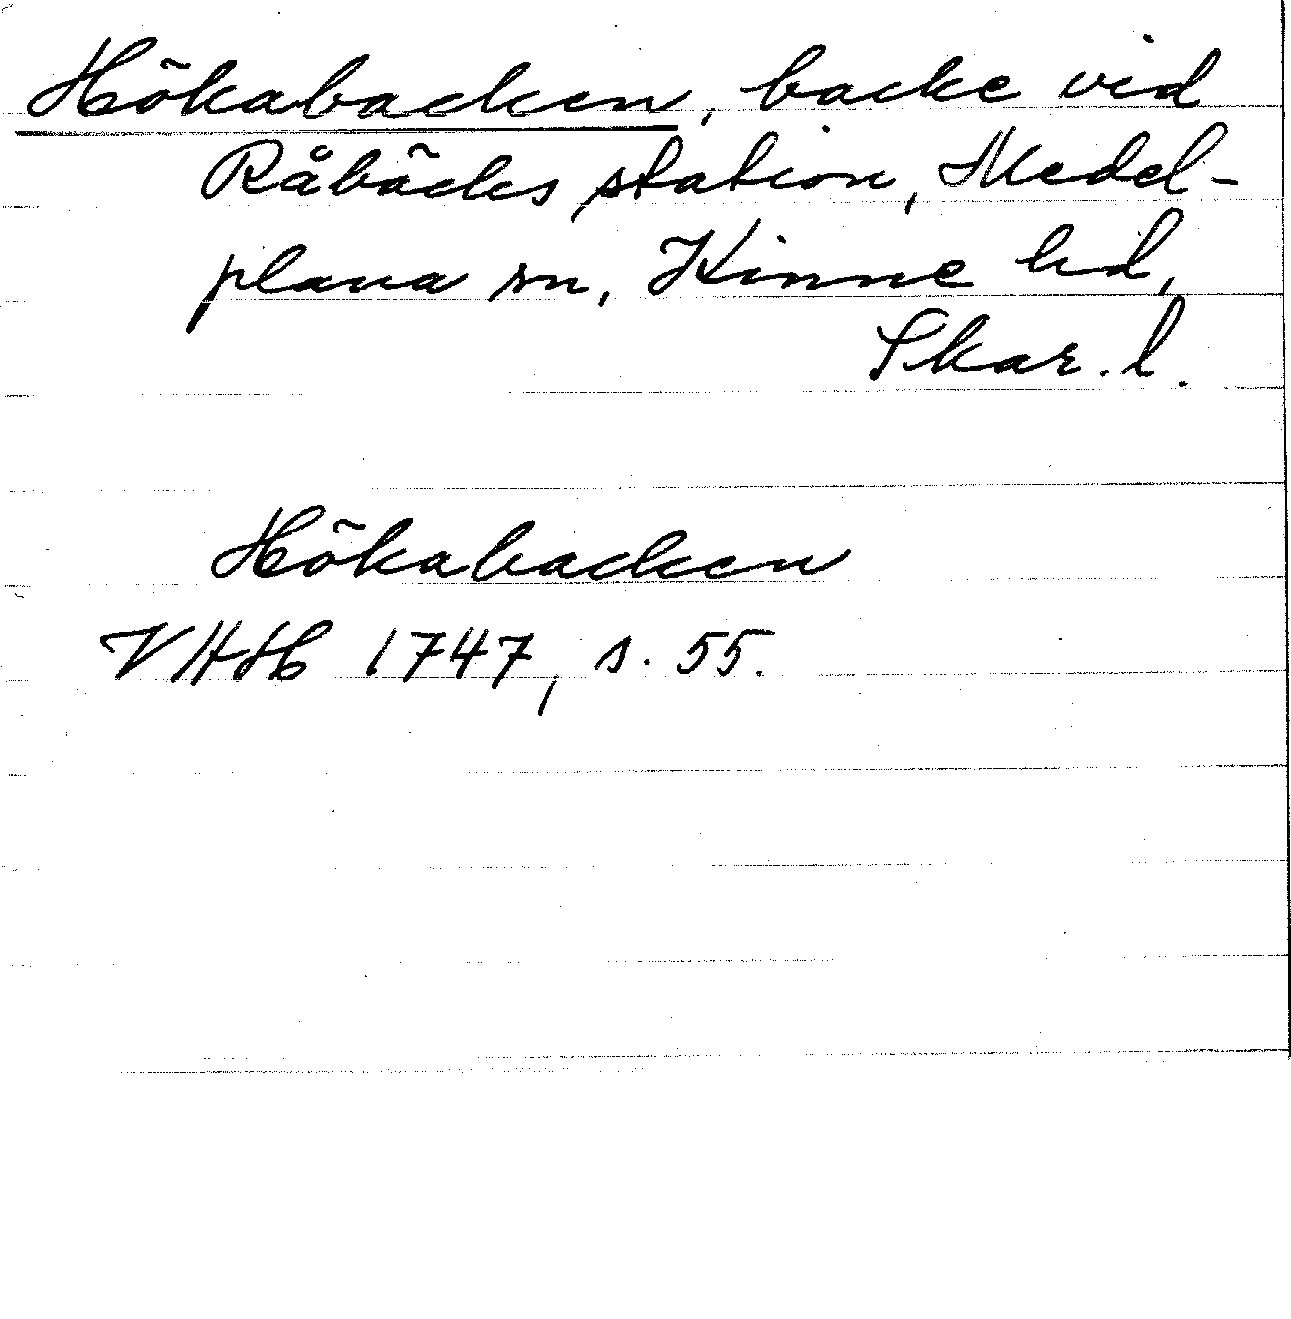 Hökabacken, backe vid
Råbäcks station, Medel-
plana sn, Kinne hd,
Skar. l.
Hökabacken
VHH 1747, s. 55.